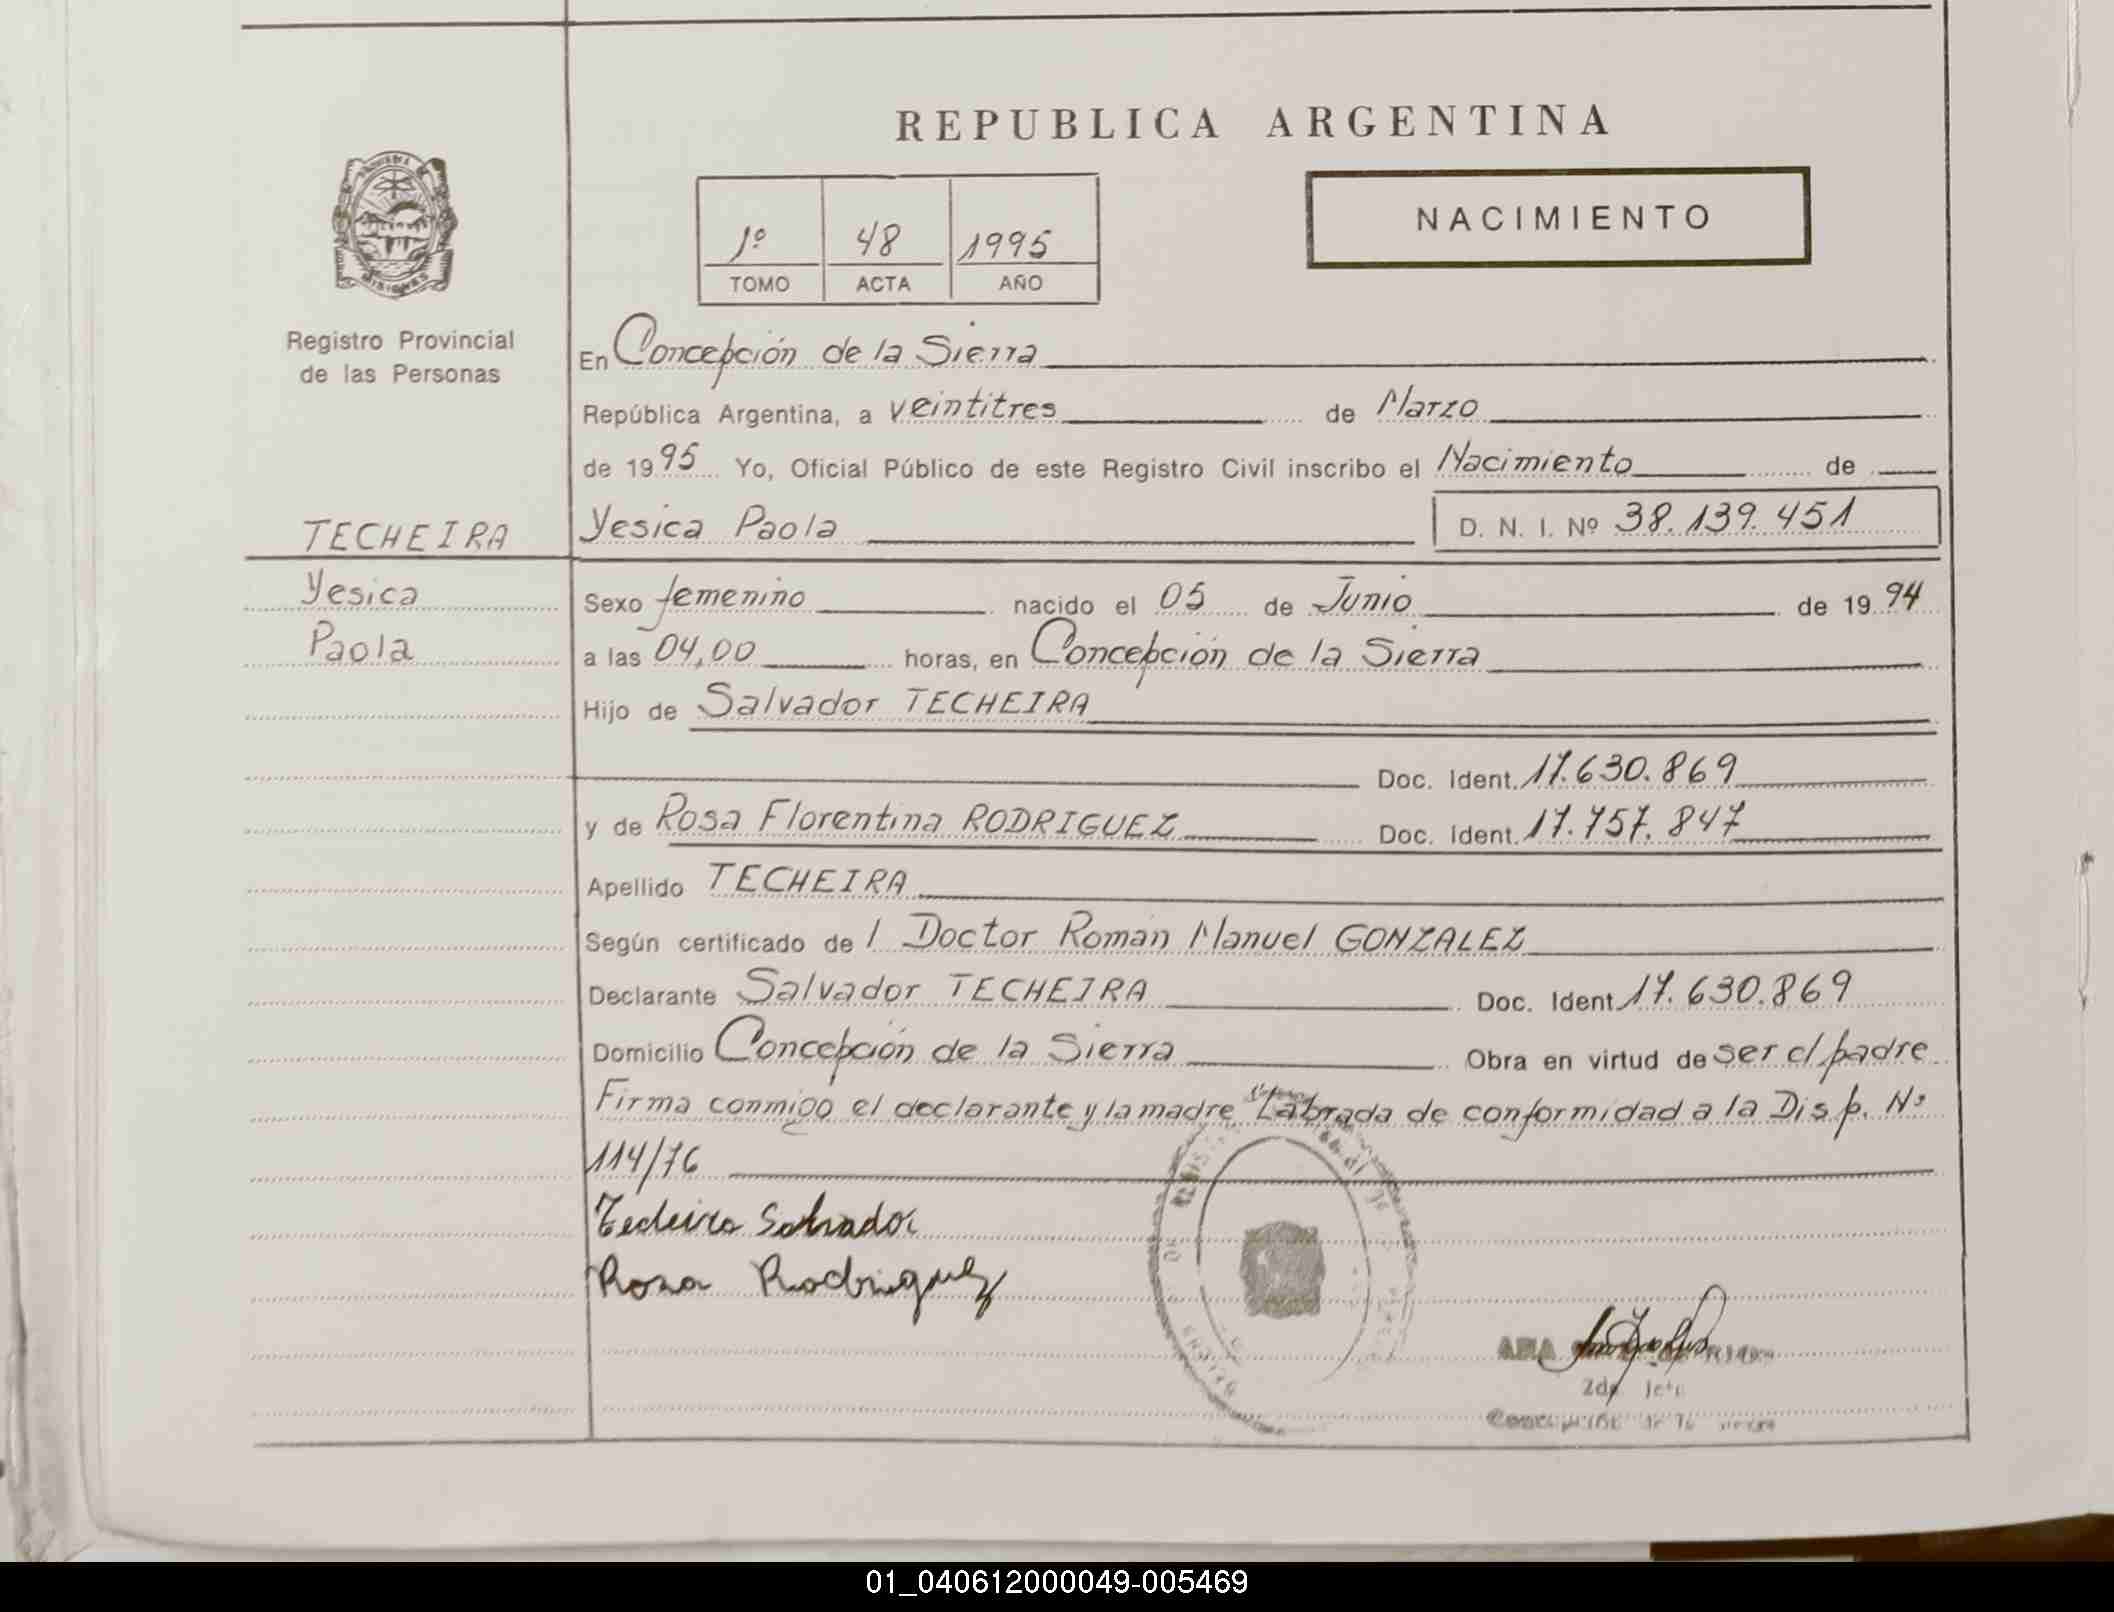 REPUBLICA ARGENTINA
NACIMIENTO
1º 48 1995
TOMO ACTA AÑO
MISIONES
Registro Provincial
de las Personas
En Concepción de la Sierra
República Argentina, a veintitres de Marzo
de 1995 Yo, Oficial Público de este Registro Civil inscribo el Nacimiento de
TECHEIRA
Yesica
Paola
Yesica Paola D. N. I. Nº 38.139.451
Sexo femenino nacido el 05 de Junio de 1994
a las 04,00 horas, en Concepción de la Sierra
Hijo de Salvador TECHEIRA
Doc. Ident. 17.630.869
y de Rosa Florentina RODRIGUEZ Doc. Ident. 17.757.847
Apellido TECHEIRA
Según certificado de l Doctor Román Manuel GONZALEZ
Declarante Salvador TECHEIRA Doc. Ident 17.630.869
Domicilio Concepción de la Sierra Obra en virtud de ser el padre
Firma conmigo el declarante y la madre Labrada de conformidad a la Disp. Nº
114/76
Techeira Salvador
Rosa Rodriguez
2do Jefe
Concepción de la Sierra
01_040612000049-005469